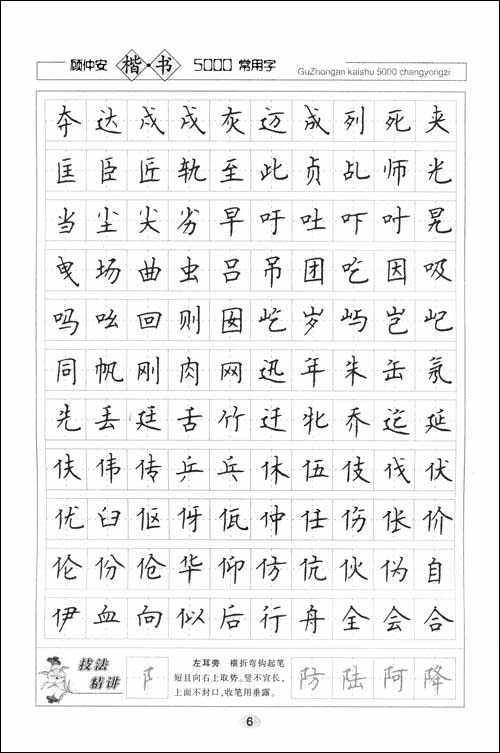 顾仲安 楷·书 5000 常用字
GuZhongan kaishu 5000 changyongzi
夯 达 戍 戌 灰 迈 成 列 死 夹
匡 臣 匠 轨 至 此 贞 乩 师 光
当 尘 尖 劣 早 吁 吐 吓 叶 晃
曳 场 曲 虫 吕 吊 团 吃 因 吸
吗 吆 回 则 囡 屹 岁 屿 岂 屺
同 帆 刚 肉 网 迅 年 朱 缶 氖
先 丢 廷 舌 竹 迁 牝 乔 迄 延
伕 伟 传 乒 乓 休 伍 伎 伐 伏
优 臼 伛 伢 佤 仲 任 伤 伥 价
伦 份 伧 华 仰 仿 伉 伙 伪 自
伊 血 向 似 后 行 舟 全 会 合
技法
精讲
阝
左耳旁 横折弯钩起笔
短且向右上取势。竖不宜长,
上面不封口,收笔用垂露。
防 陆 阿 降
6